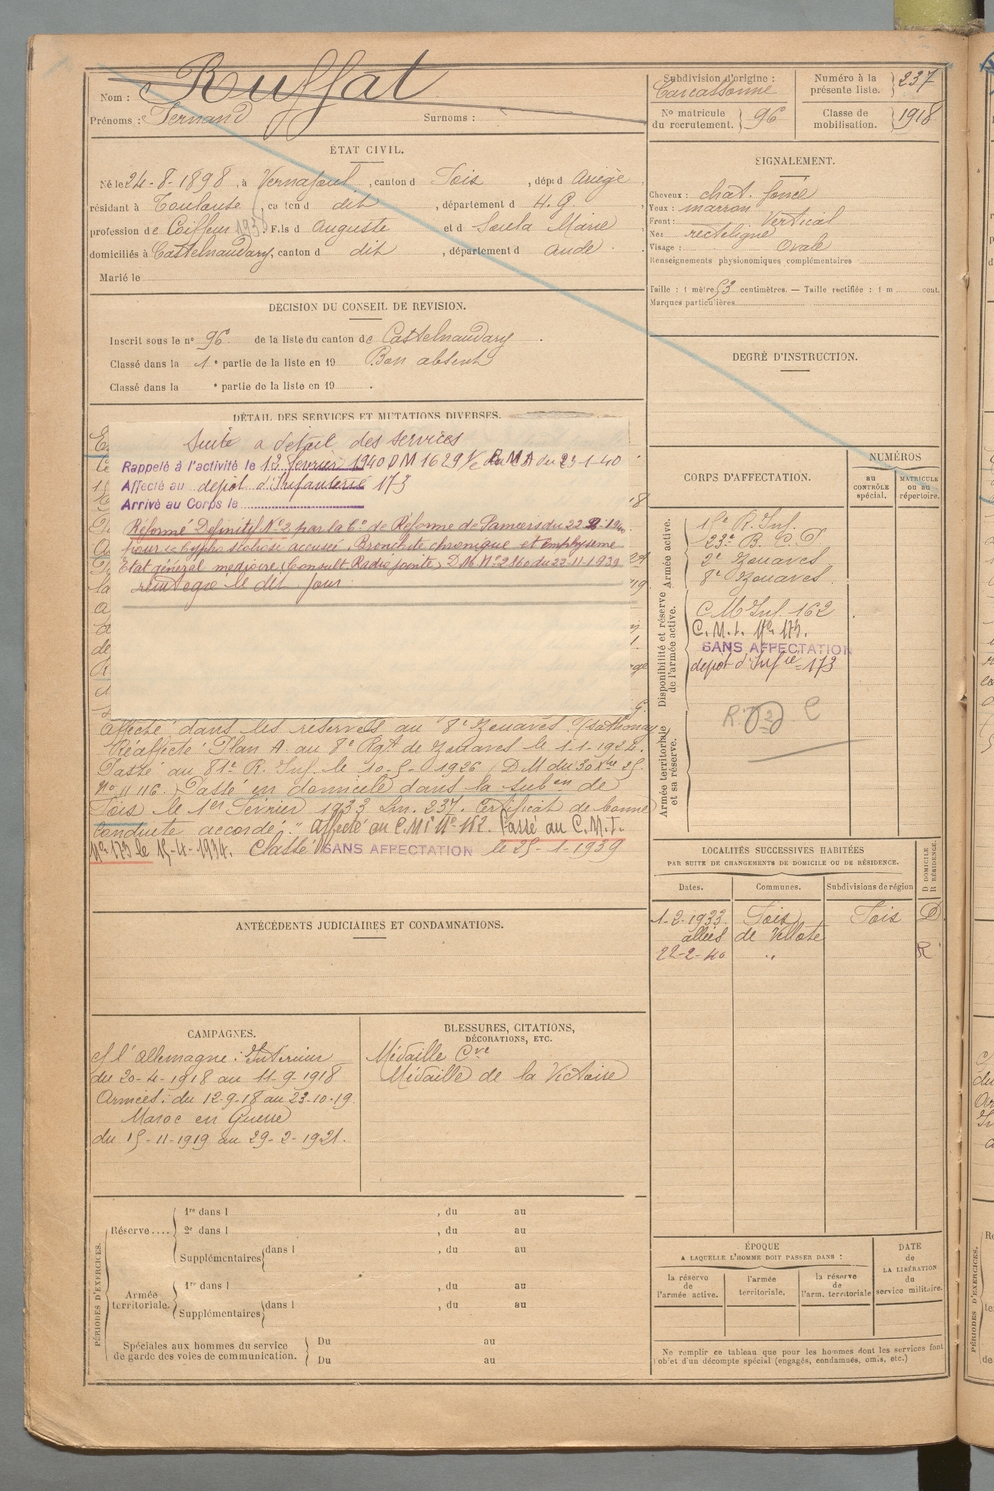 Nom : Ruffat
Prénoms : Fernand Surnoms :
Subdivision d'origine : Carcassonne
Numéro à la présente liste. 237
No matricule du recrutement. 96
Classe de mobilisation. 1918
ÉTAT CIVIL.
Né le 24-8-1898, à canton d Foix, dépt d Ariège
résidant à Toulouse, canton d dit, département d H. G
profession de Coiffeur Fils d Auguste et d Soula Marie
domiciliés à Castelnaudary, canton d dit, département d Aude
Marié le
SIGNALEMENT.
Cheveux : chat. foncé
Yeux : marron
Front : Vertical
Nez rectiligne
Visage : Ovale
Renseignements physionomiques complémentaires
Taille : 1 mètre 53 centimètres. — Taille rectifiée : 1 m cent.
Marques particulières
DÉCISION DU CONSEIL DE REVISION.
Inscrit sous le nº 96 de la liste du canton de Castelnaudary
Classé dans la 1e partie de la liste en 19 Bon absent
Classé dans la e partie de la liste en 19 .
DEGRÉ D'INSTRUCTION.
DÉTAIL DES SERVICES ET MUTATIONS DIVERSES.
Suite a détail des services
Rappelé à l'activité le 13 février 1940 DM 1629 du 23-1-40
Affecté au depot d'Infanterie 173
Arrivé au Corps le
Réformé Definitif Nº 2 par la Con de Réforme de Pamiers du 22
pour cyphoscoliose accusée. Bronchite chronique et emphysème
Etat général médiocre (Consult Radio jointe) D.M. Nº du 22-11-1939
renvoyé le dit jour
affecté dans les réserves au 8e Zouaves
Réaffecté Plan A. au 8e Rgt de Zouaves le 1-1-1924.
Passé au 81e R. Inf. le 10-5-1926 (D.M du
Nº 11116. Passé en domicile dans la subon de
Foix le 1er Février 1933 Lm. 237. Certificat de bonne
conduite accordé." Affecté au C.M.I Nº 162. Passé au C.M.I.
Nº 173 le 15-4-1934. Classé SANS AFFECTATION le 25-1-1939
CORPS D'AFFECTATION.
NUMÉROS
au CONTRÔLE spécial.
MATRICULE OU AU répertoire.
Armée active.
15e R. Inf.
23e B. C. P
2e Zouaves
8e Zouaves
Disponibilité et réserve de l'armée active.
C M Inf. 162
C.M.I. Nº 173.
SANS AFFECTATION
depot d'Infie 173
Armée territoriale et sa réserve.
LOCALITÉS SUCCESSIVES HABITÉES
PAR SUITE DE CHANGEMENTS DE DOMICILE OU DE RÉSIDENCE.
Dates. Communes. Subdivisions de région
D DOMICILE R RÉSIDENCE.
1-2-1933 Foix Foix D
allées de Villote
22-2-40 " R
ANTÉCÉDENTS JUDICIAIRES ET CONDAMNATIONS.
CAMPAGNES.
c/ l'Allemagne : Intérieur
du 20-4-1918 au 11-9-1918
Armées : du 12-9-18 au 23-10-19
Maroc en Guerre
du 15-11-1919 au 29-2-1921.
BLESSURES, CITATIONS, DÉCORATIONS, ETC.
Médaille Cve
Médaille de la Victoire
PÉRIODES D'EXERCICES.
Réserve....
1re dans l , du au
2e dans l , du au
Supplémentaires dans l , du au
Armée territoriale.
1re dans l , du au
Supplémentaires dans l , du au
Spéciales aux hommes du service de garde des voies de communication.
Du au
Du au
ÉPOQUE
A LAQUELLE L'HOMME DOIT PASSER DANS :
la réserve de l'armée active.
l'armée territoriale.
la réserve de l'arm. territoriale
DATE de LA LIBÉRATION du service militaire.
Ne remplir ce tableau que pour les hommes dont les services font
l'objet d'un décompte spécial (engagés, condamnés, omis, etc.)